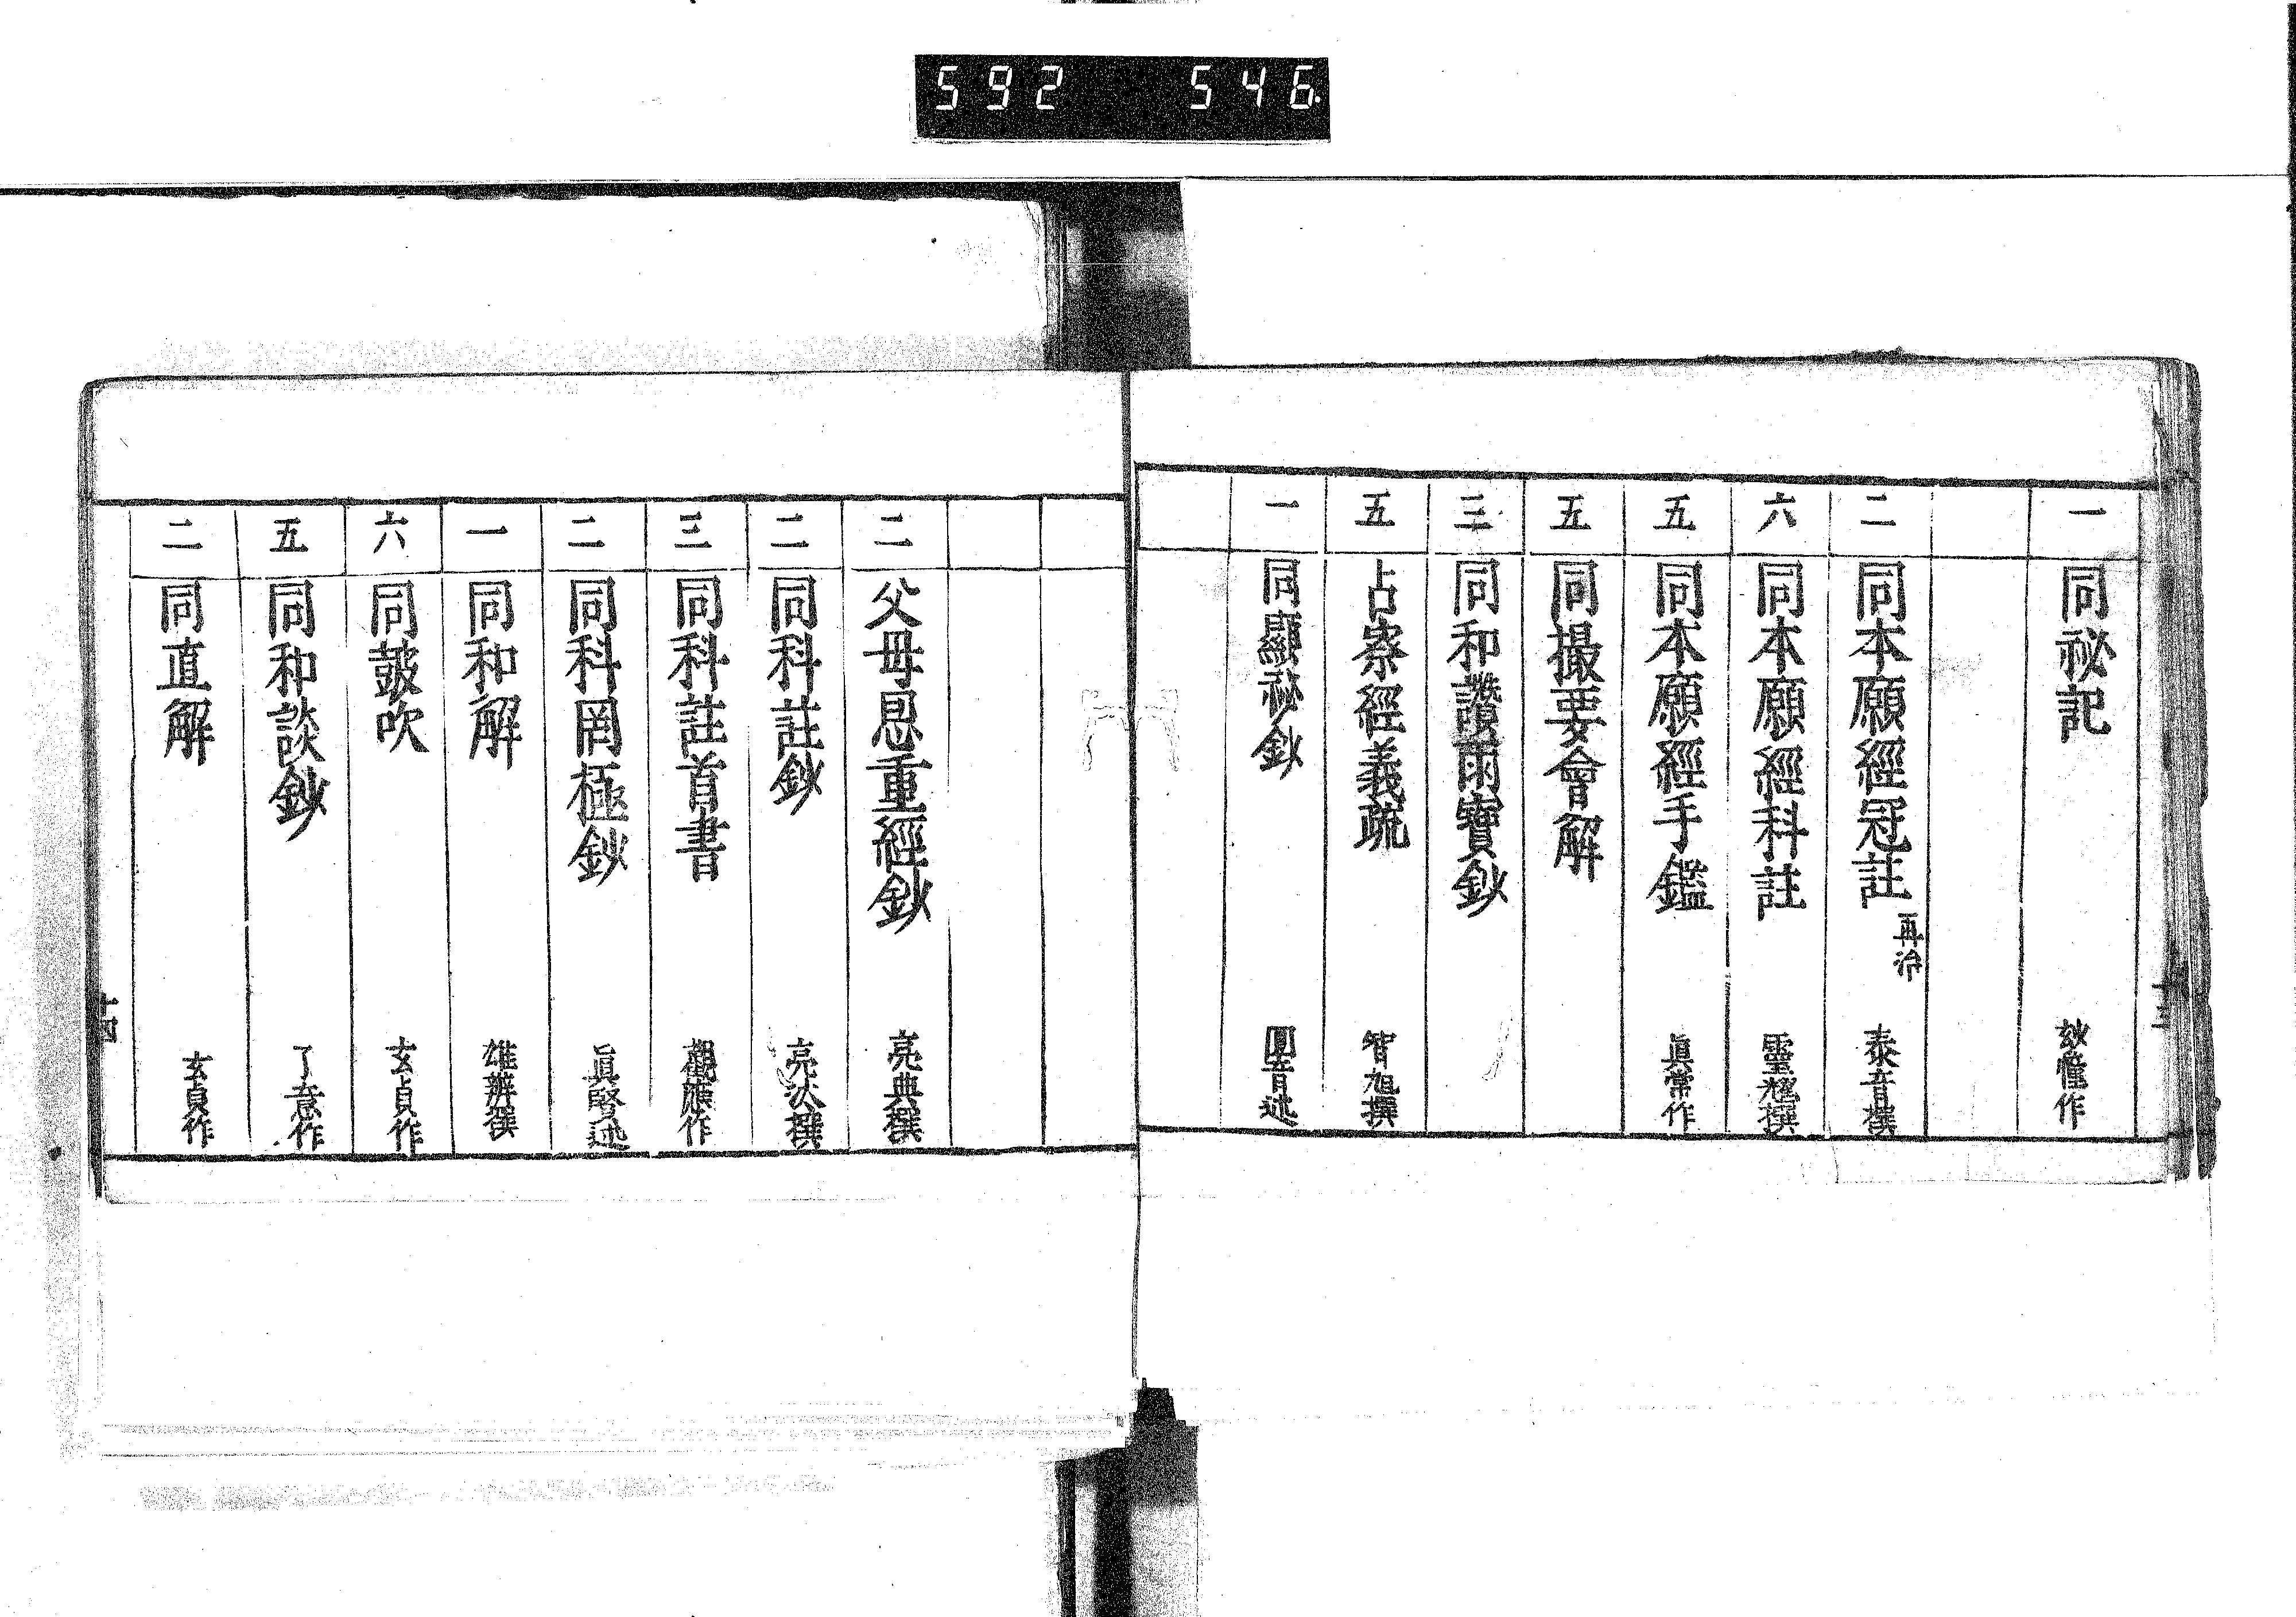 592 546
一 同祕記 玅幢作
二 同本願經冠註 再治 泰音撰
六 同本願經科註 靈耀撰
五 同本願經手鑑 眞常作
五 同撮要會解
三 同和讚雨寶鈔
五 占察經義疏 智旭撰
一 同顯祕鈔
十三
二 父母恩重經鈔 亮典撰
二 同科註鈔 亮汰撰
三 同科註首書 觀應作
二 同科罔極鈔 眞賢述
一 同和解 雄辨撰
六 同鼓吹 玄貞作
五 同和談鈔 了意作
二 同直解 玄貞作
十四